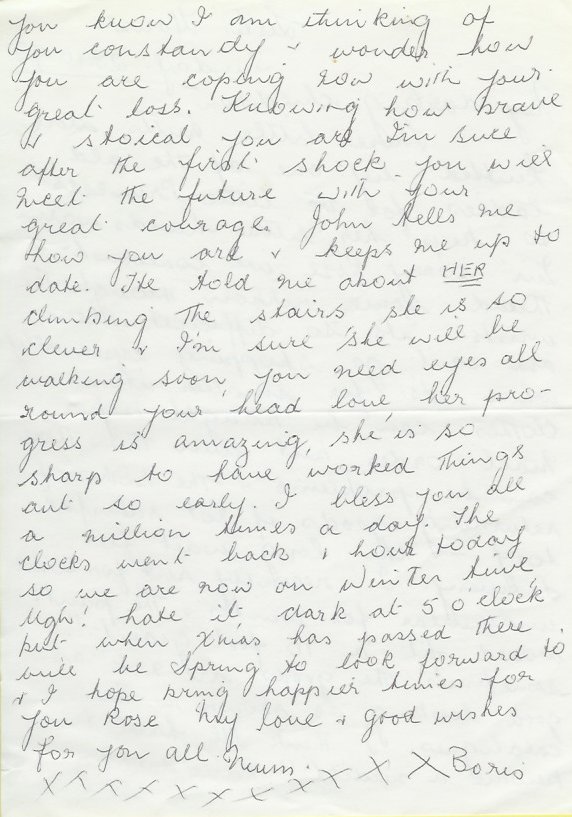 you know I am thinking of
you constantly & wonder how
you are coping now with your
great loss. Knowing how brave
& stoical you are I'm sure
after the first shock you will
meet the future with your
great courage. John tells me
how you are & keeps me up to
date. He told me about HER
climbing the stairs she is so
clever & I'm sure she will be
walking soon, you need eyes all
round your head love, her pro-
gress is amazing, she is so
sharp to have worked things
out so early. I bless you all
a million times a day. The
clocks went back 1 hour today
so we are now on Winter time,
Ugh! hate it dark at 5 o'clock
but when Xmas has passed there
will be Spring to look forward to
& I hope bring happier times for
you Rose My love & good wishes
for you all. Mum. X Boris
X X X X X X X X X X X